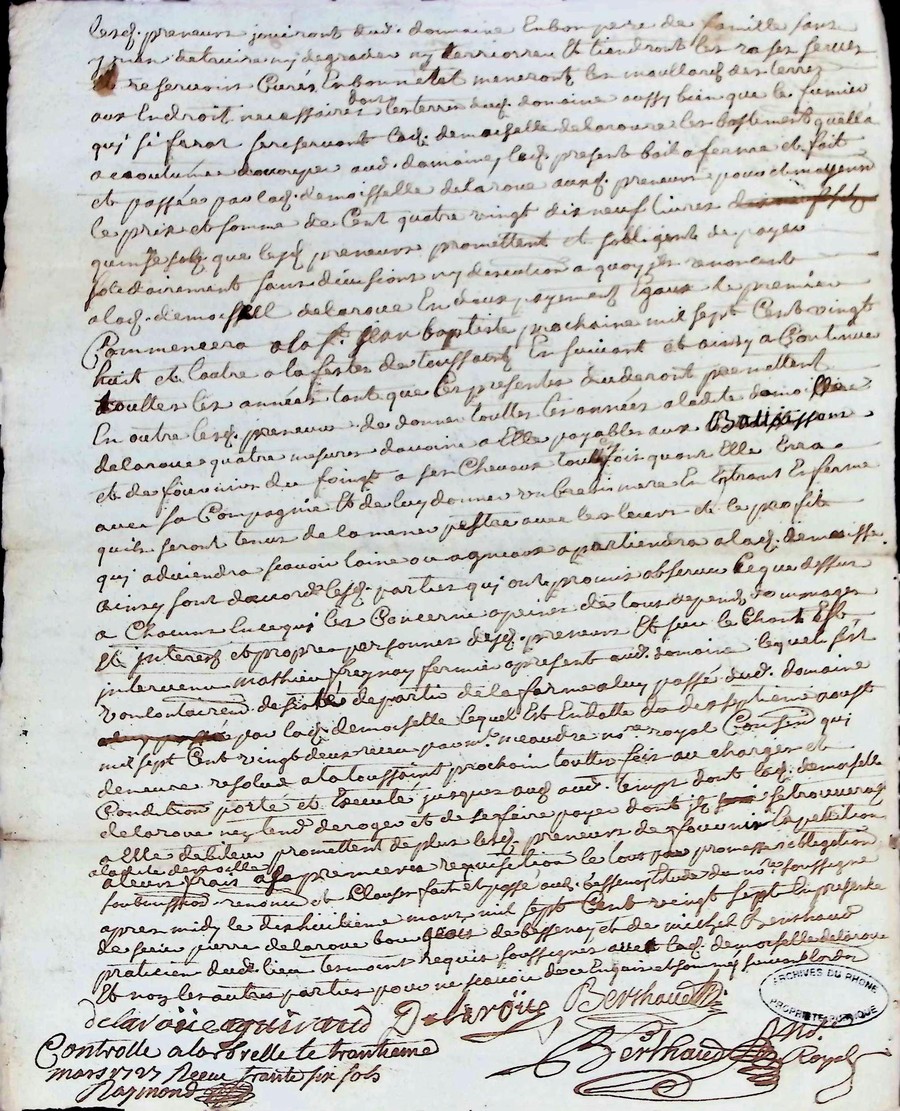 lesd. preneurs jouiront dud. domaine En bon pere de famille sans
y rien detruire ny degrader ny et tiendront les rases serves
et reservoirs Curés En bon Etat meneront les des terres
aux Endroit necessaires dans les terres dud. domaine aussy bien que le fumier
qui si feras se reservant lad. demoiselle delaroue les bastiments quella
a acoutumée doccuper aud. domaine, led. present bail a ferme et fait
et passée par lad. demoisselle delaroue ausd. preneurs pour et moyenn
le prix et somme de Cent quatre vingt dix neuf livres
quinse sols que lesd. preneurs promettent et sobligent de payer
solidairement sans division ny discution a quoy ils renoncent
a lad. demoisell delaroue En deux payement Egaux le premier
Commencera a la st. Jean baptiste prochaine mil sept Cent vingt
huit et lautre a la feste de toussaint En suivant et ainsy a Continue
touttes les années tant que les presentes dureront promettent
En outre lesd. preneurs de donner touttes les années a ladite demoiselle
delaroue quatre mesures davoine a Elle payables aux
et de fournir du foingt a ses Chevaux touttefois quant Elle Erra
avec sa Compagnie Et de luy donner un brebis mere En Entrant En ferme
quils seront tenus de la mener pestre avec les leurs et le profit
qui adviendra scavoir laine ou agneaux apartiendra a lad. demoiselle
ainsy sont daccord lesd. parties qui ont promis observer Ce que dessus
a Chacun En ce qui les Concerne a peine de tous depend dommages
Et interest et propre personnes desd. preneurs Et sur le Chant Est
intervenu mathieu freynay fermier a present aud. domaine lequel sest
vonlontairem departir de la ferme a luy passé dud. domaine
par lad. demoiselle lequel Est En datte du dix septieme aoust
mil sept Cent vingt deux receu par me. meandre nore. royal Consent qui
demeure resolue a la toussaint prochain touttes fois au charges et
Condition porte et Execute jusques aud. temps dont lad. demoiselle
delaroue ny tend deroger et de se faire payer dont il se trouveras
a Elle debiteur promettent de plus lesd. preneurs de fournir Expedition
a ladite demoiselle
a leurs frais a sa premiere requisition le tous par promesse obligation
soubmission renoncé et Clauses fait et passé aud. bessenay Etude du nore. soussigne
apres midy le dixhuitieme mars mil sept Cent vingt sept En presence
de sieur pierre delaroue bourgeois de bessenay et de michel Berthaud
praticien dud. lieu temoins requis soussignés avec lad. demoiselle delaroue
Et non les autres parties pour ne scavoir de ce Enquis et sommés suivant lordo
delaroüe Delaroüe Berthaud
Berthaud Nore.
Royal
Controlle a larbrelle le trantieme
mars 1727 Receu trante six sols
Raymond
ARCHIVES DU RHONE
PROPRIETE PUBLIQUE